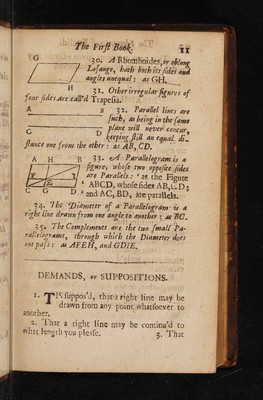 The First Book.
11
G
30. A Rhomboides, or oblong
Losange, hath both its sides and
angles unequal: as GH.
H
31. Other irregular figures of
four sides are call'd Trapesia.
A B
32. Parallel lines are
such, as being in the same
plane will never concur,
C D
keeping still an equal di-
stance one from the other: as AB, CD.
A H B
33. A Parallelogram is a
figure, whose two opposite sides
are Parallels: as the Figure
ABCD, whose sides AB, CD;
C G D
and AC, BD, are parallels.
34. The Diameter of a Parallelogram is a
right line drawn from one angle to another: as BC.
35. The Complements are the two small Pa-
rallelograms, through which the Diameter does
not pass: as AFEH, and GDIE.
DEMANDS, or SUPPOSITIONS.
1. 'TIS suppos'd, that a right line may be
drawn from any point whatsoever to
another.
2. That a right line may be continu'd to
what length you please.
3. That